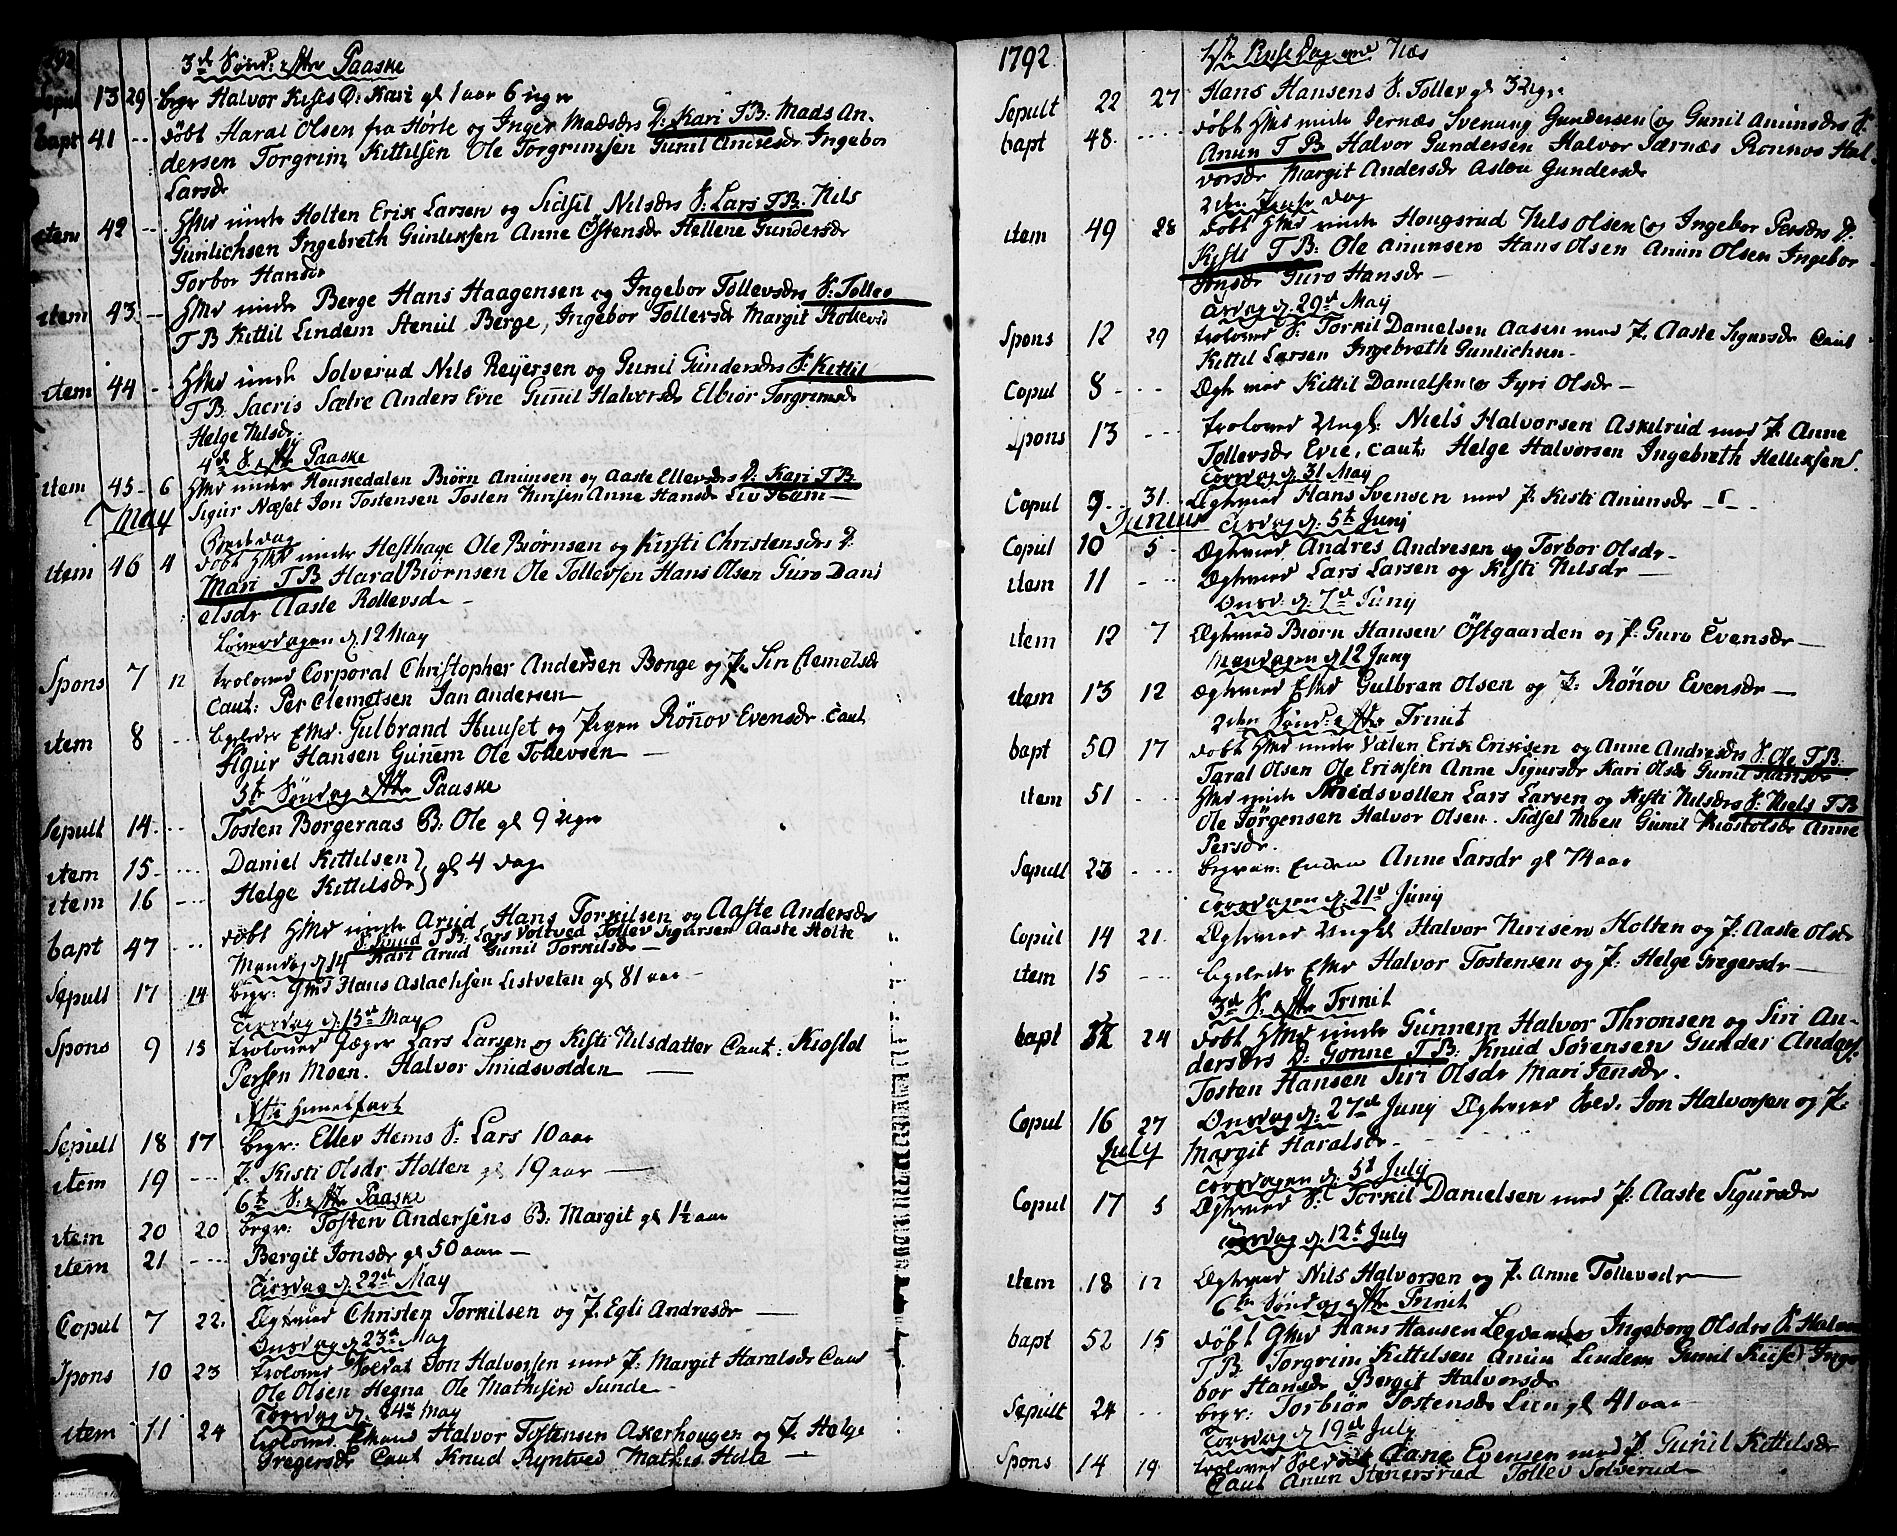 3d Sønd: efter Paaske
Sepul 13 29 begr Halvor Kises D: Kari gl 1 aar 6 uger
bapt 41 -- døbt Haral Olsen fra Hørte og Inger Madsdrs D: Kari T B: Mads An-
dersen Torgrim Kittilsen Ole Torgrimsen Gunil Andresdr Ingebor
Larsdr
item 42 -- Holten Erik Larsen og Sidsil Nilsdrs S: Lars T B. Nils
Gunlichsen Ingebreth Gunliksen Anne Östensdr Hellene Gundersdr
Torbor Hansdr
item 43 -- Berge Hans Haagensen og Ingebor Tollevsdrs S: Tollev
T B Kittil Lindem Stenul Berge, Ingebor Tollevsdr Margit Rollevsd
item 44 -- Solverud Nils Reyersen og Gunil Gundersdrs S: Kittil
T B. Sacris Sætre Anders Evie Gunil Halvorsdr Elbiør Torgrimsdr
Helge Nilsdr.
4de S. efter Paaske
item 45 - 6 Hounedalen Biørn Anunsen og Aaste Ellevsdrs D. Kari T B
Sigur Næset Jon Tostensen Tosten Nirisen Anne Hansdr Liv Ham -
May
Beededag
item 46 4 døbt Hesthage Ole Biørnsen og Kirsti Christensdrs D.
Mari T B Haral Biørnsen Ole Tollevsen Hans Olsen Guro Dani
elsdr Aaste Rollevsd -
Løverdagen d. 12 May
Spons 7 12 troloved Corporal Christopher Andersen Bonge og P. Siri Clemetsdr
Caut: Per Clemetsen Jan Andersen
item 8 --- Gulbrand Huuset og Pigen Rönnov Evensdr. Caut
Sigur Hansen Gunnem Ole Tollevsen -
5te Søndag efter Paaske
Sepult 14 --- Tosten Borgeraas B: Ole gl 9 uger
item 15 --- Daniel Kittilsen } gl 4 dage
item 16 --- Helge Kittilsdr }
bapt 47 --- døbt Arud Hans Torkilsen og Aaste Andersdrs
S. Knud T B. Lars Voltved Tollev Sigursen Aaste Holte
Mandag d 14 Kari Arud Gunil Torkilsdr -
Sepult 17 14 begr: Hans Aslachsen Listveten gl 81 aar -
Tirsdag d. 15de May
Spons 9 15 troloved Jæger Lars Larsen og Kisti Nilsdatter Caut: Kiostol
Persen Moen. Halvor Smidsvolden -
Christi Himelfart
Sepult 18 17 begr: Ellev Hems S: Lars 10 aar
item 19 --- P. Kisti Olsdr Holten gl 19 aar -
6te S: efter Paaske
item 20 20 begr: Tosten Andersens B: Margit gl 1½ aar
item 21 --- Bergit Jonsdr gl 50 aar -
Tirsdag d. 22de May
Copul 7 22. Ægtevied Christen Torkilsen og P. Egli Andresdr -
Onsdag d 23de May
Spons 10 23 trolovet Soldat Jon Halvorsen med P. Margit Haralsdr Caut
Ole Olsen Hegna, Ole Mathisen Sunde -
Torsdag d. 24de May
item 11 24 trolovet Halvor Tostensen Akerhougen og P. Helge
Gregersdr Caut Knud Ryntved Mathis Holte -
1792
1ste Pinse Dag Næs
Sepult 22 27 Hans Hansens S. Tollev gl 3 uger
bapt 48 --- døbt Jernæs Svenung Gundersen og Gunil Anunsdrs S.
Anun T B Halvor Gundersen Halvor Jærnæs Ronnov Hal-
vorsdr Margit Andersdr Aslou Gundersdr
2den Pinse dag
item 49 28 døbt Hougsrud Nils Olsen og Ingebor Persdrs D.
Kisti T B: Ole Anunsen Hans Olsen Anun Olsen Ingebor
Guro Hansdr -
Tirsdag d. 29de May
Spons 12 29 trolovet S: Torkil Danielsen Aasen med P. Aaste Sigursdr Caut
Kittil Larsen Ingebreth Gunlichsen -
Copul 8 --- Ægteviet Kittil Danielsen og Jyri Olsdr -
Spons 13 --- trolovet Ungk: Niels Halvorsen Askilrud med P. Anne
Tollevsdr Evie, Caut. Helge Halvorsen Ingebreth Helliksen.
Torsdag d. 31 May
Copul 9 31. Ægtevied Hans Svensen med P. Kisti Anunsdr -
Junius Tirsdag d. 5te Junj
Copul 10 5 Ægtevied Andres Andresen og Torbor Olsdr -
item 11 --- Ægtevied Lars Larsen og Kisti Nilsdr -
Onsd. d. 7de Junij
item 12 7 Ægtevied Biørn Hansen Östgaarden og P. Guro Evensdr -
Mandagen d 12 Junij
item 13 12 Ægtevied Gulbran Olsen og P: Rönov Evensdr -
2den Sønd: efter Trinit
bapt 50 17 døbt Valen Erik Eriksen og Anne Andresdrs S. Ole T B.
Taral Olsen Ole Eriksen Anne Sigursdr Kari Olsdr Gunil Hansdr
item 51 --- Smedsvollen Lars Larsen og Kisti Nilsdrs S. Niels T B
Ole Jørgensen Halvor Olsen. Sidsel Moen Gunil Kiostolsdr Anne
Persdr.
Sepult 23 --- begravet Enken Anne Larsdr gl 74 aar
Torsdagen d. 21de Junij
Copul 14 21. Ægtevied Ungk Halvor Nirisen Holten og P. Aaste Olsdr
item 15 --- Halvor Tostensen og P. Helge Gregersdr -
3de S. efter Trinit
bapt 24 døbt Gunnem Halvor Thronsen og Siri An-
dersdrs D. Gonne T B: Knud Sørensen Gunder Anders.
Tosten Hansen Siri Olsdr Mari Jensdr.
Copul 16 27 Onsdag d. 27de Junij Ægtevied Sold. Jon Halvorsen og P.
July Margit Haralsdr -
Torsdagen d. 5te July
Copul 17 5 Ægtevied S: Torkil Danielsen med P: Aaste Sigursdr
Torsdag d. 12te July
item 18 12 Ægtevied Nils Halvorsen og P. Anne Tollevsdr -
6te Søndag efter Trinit
bapt 52 15 døbt Hans Hansen Ingeborg Olsdrs S. Halvor
T B. Torgrim Kittilsen Anun Lindem Gunil Kiise Inge-
bor Hansdr Bergit Halvorsdr
Sepult 24 --- begr: Torbiør Tostensdr Lun gl 41 aar -
Torsdag d 19de July
Spons 14 19 trolovet Soldat Evensen med P. Gunil Kittilsdr
Caut Anun Stenersrud Tollev Solverud -